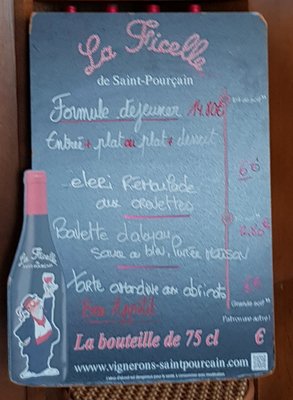 La Ficelle
de Saint-Pourçain
Formule dejeuner 14.80€
Entrée + plat ou plat + dessert
celeri Remoulade
aux crevettes
6€
sauce au bleu, Purée maison
tarte aux abricots
Bon Appétit
La Ficelle
La bouteille de 75 cl €
www.vignerons-saintpourcain.com